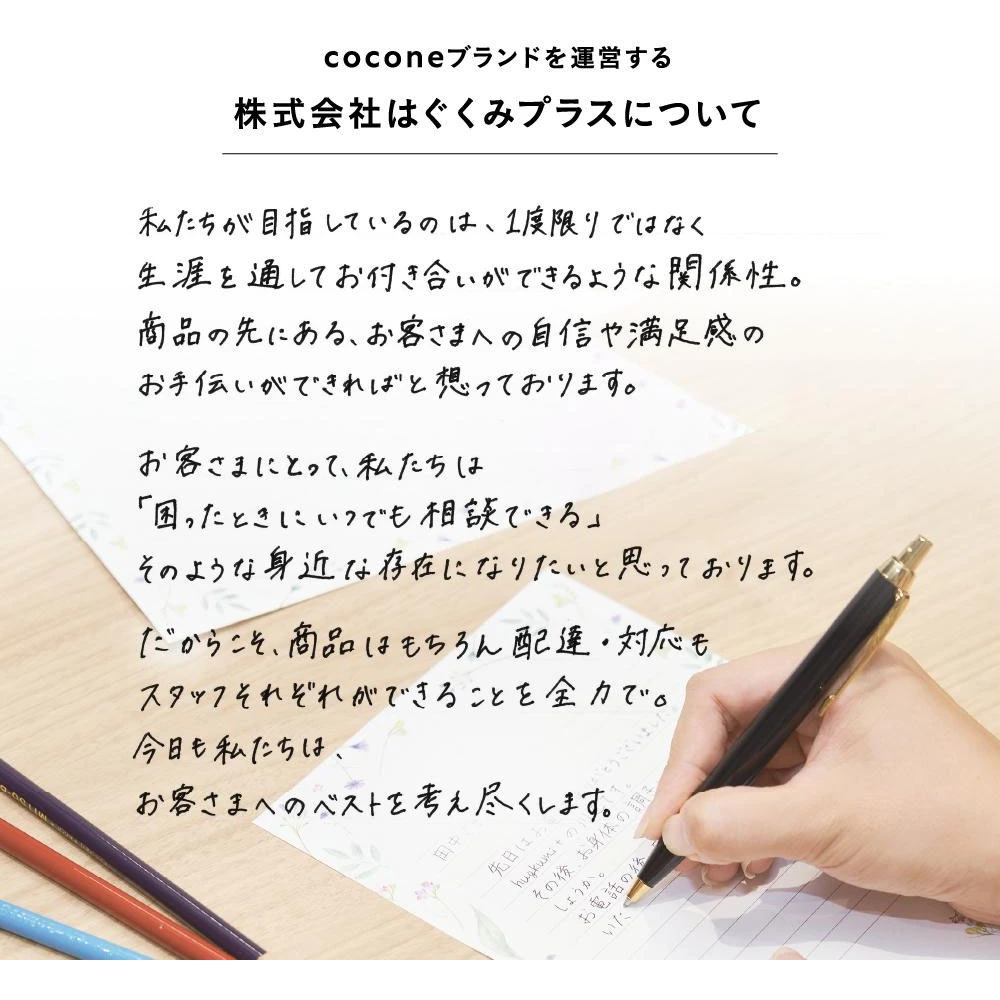 coconeブランドを運営する
株式会社はぐくみプラスについて
私たちが目指しているのは、1度限りではなく
生涯を通してお付き合いができるような関係性。
商品の先にある、お客さまへの自信や満足感の
お手伝いができればと想っております。
お客さまにとって、私たちは
「困ったときにいつでも相談できる」
そのような身近な存在になりたいと思っております。
だからこそ、商品はもちろん配達・対応も
スタッフそれぞれができることを全力で。
今日も私たちは、
お客さまへのベストを考え尽くします。
田中
先日はお
hugkumi+の
その後、お身体の調子
しょうか。
お電話の後
いた